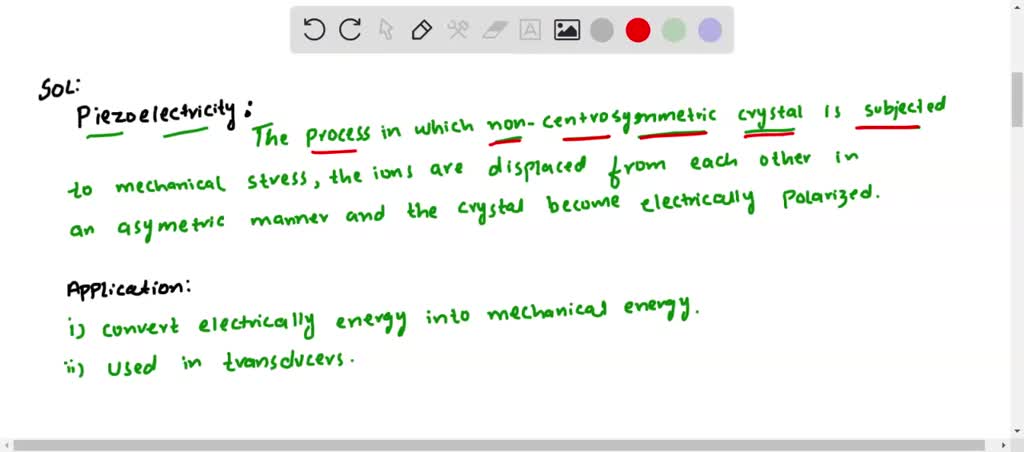 SOL:
Piezoelectricity:
The process in which non-centrosymmetric crystal is subjected
to mechanical stress, the ions are displaced from each other in
an asymetric manner and the crystal become electrically polarized.
Application:
i) convert electrically energy into mechanical energy.
ii) used in transducers.